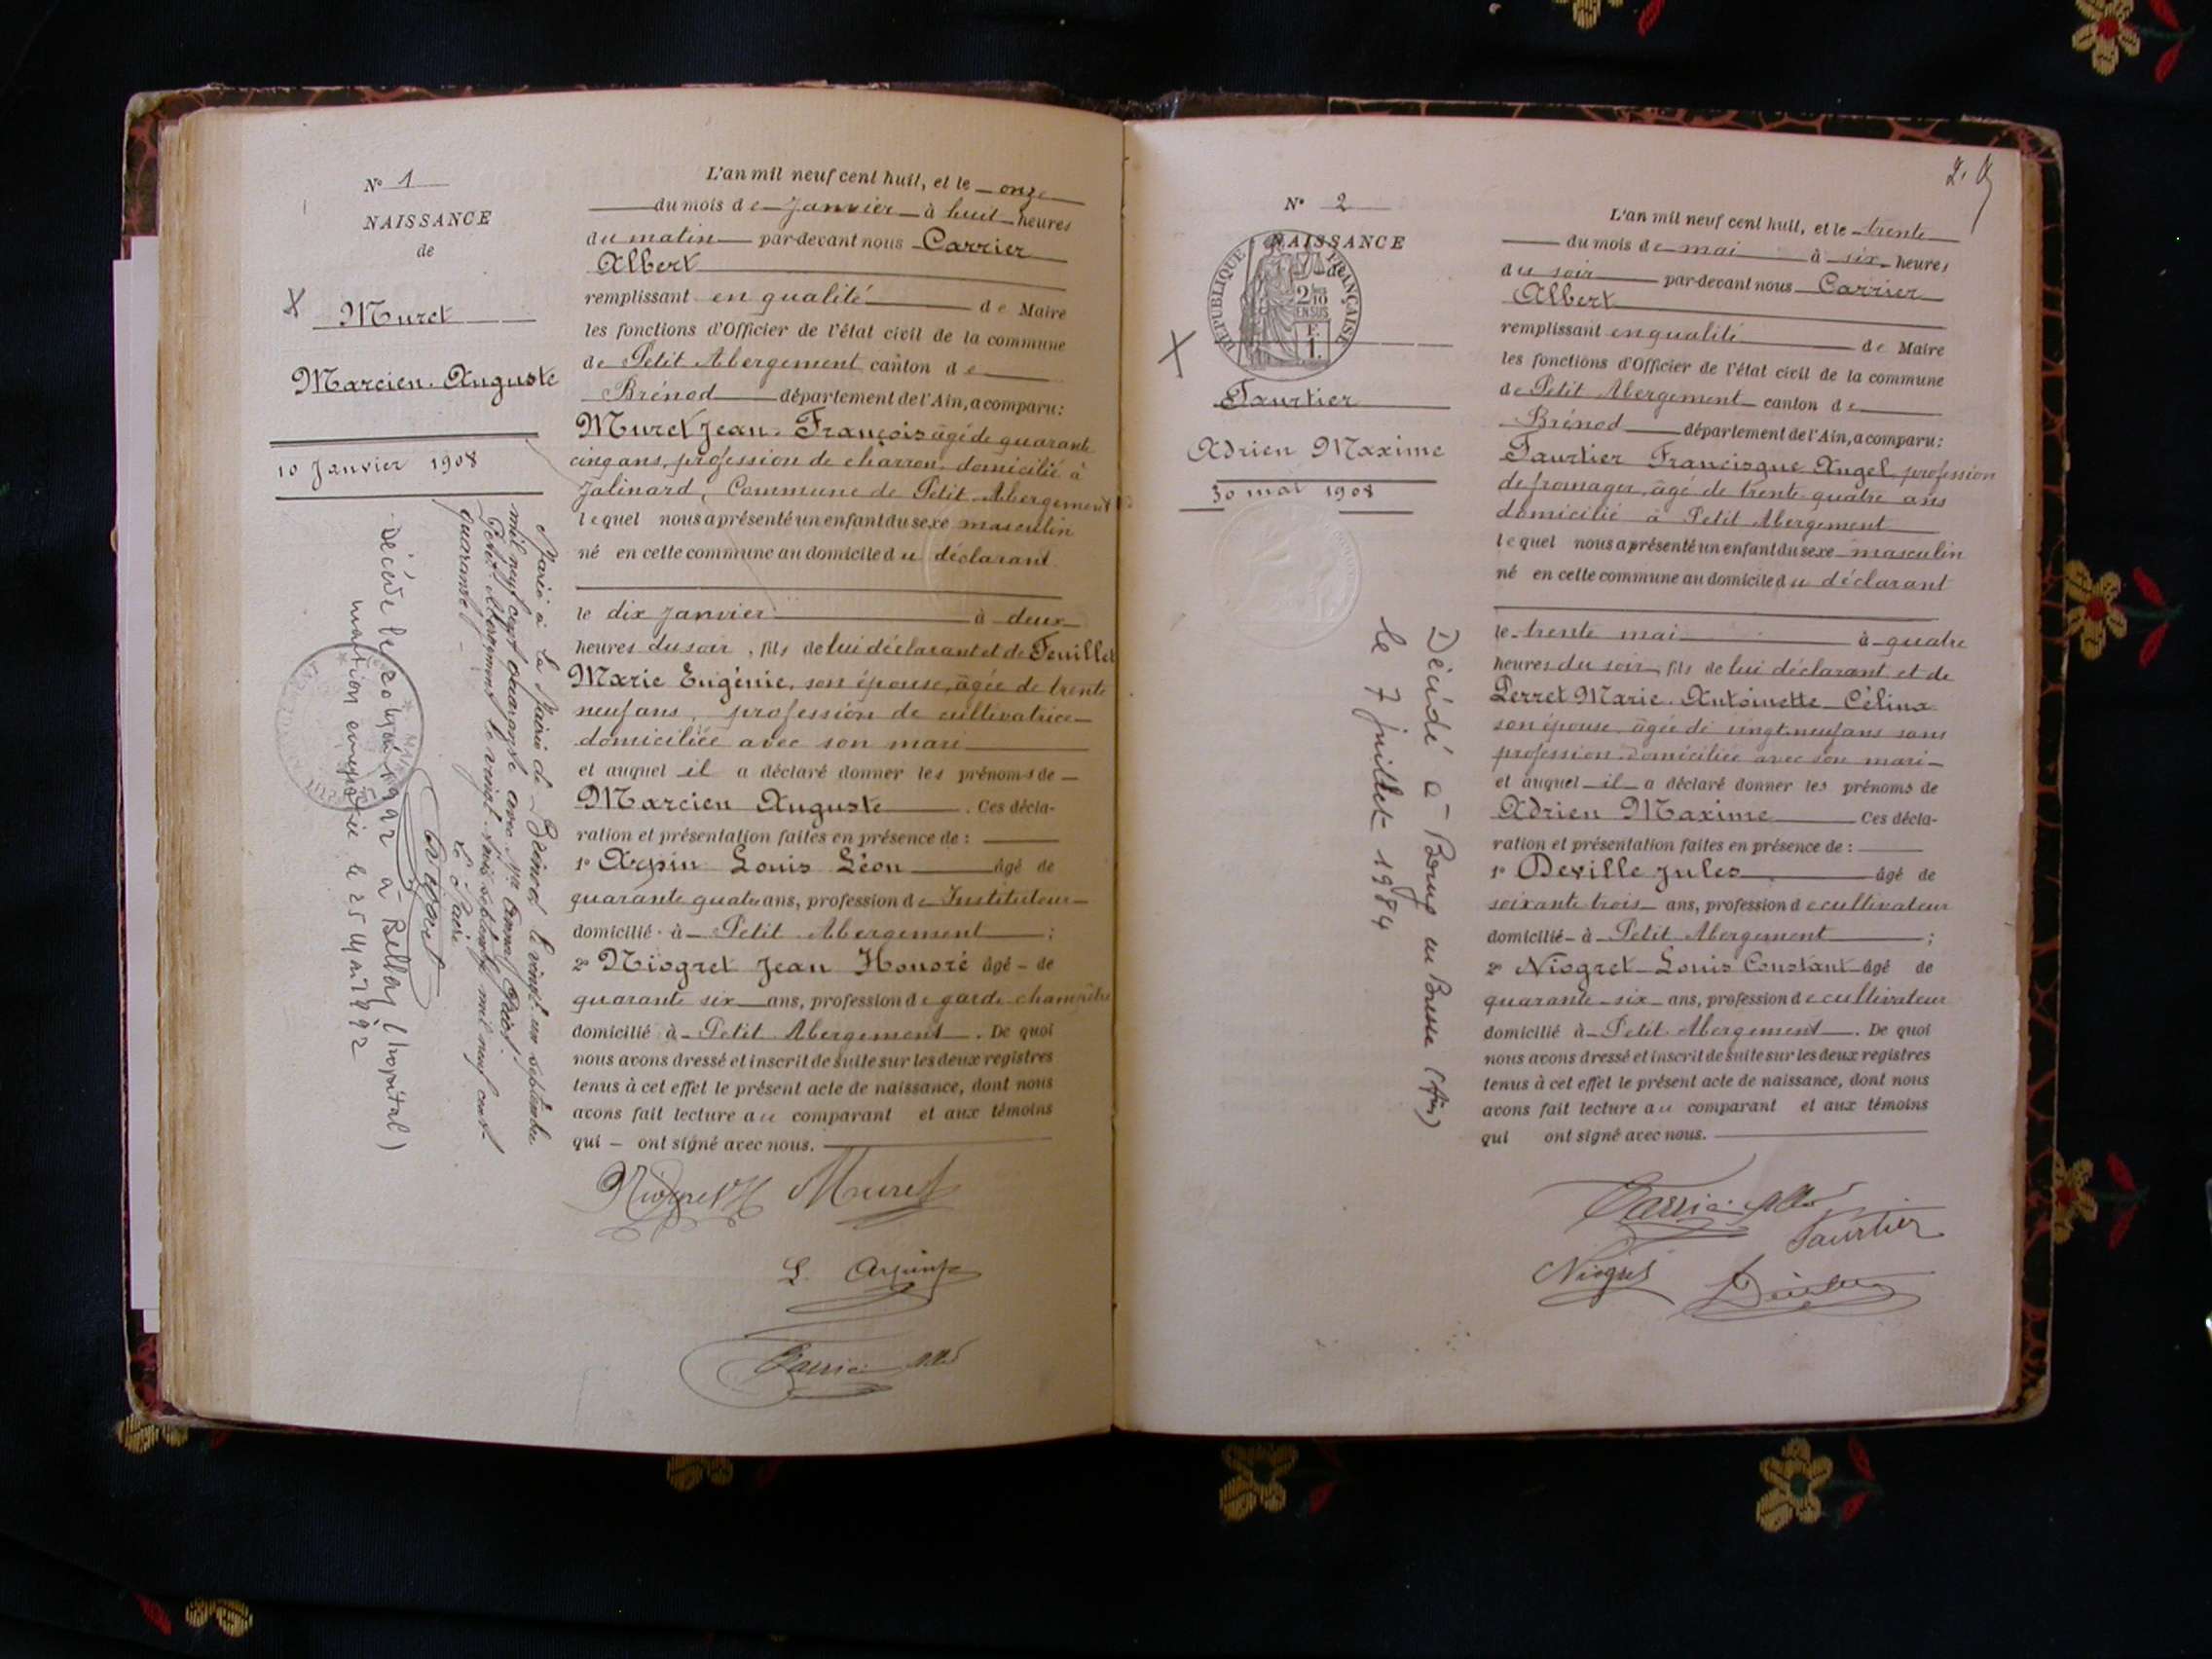 Nº 1
NAISSANCE
de
X Muret
Marcien. Auguste
10 Janvier 1908
Marié à la Mairie de Brénod le vingt un septembre
mil neuf cent quarante avec
Petit Abergement le vingt-six septembre mil neuf cent
quarante.
Le Maire
Décédé le 20 1992 à Belley (hopital)
mention le 25 1992
L'an mil neuf cent huit, et le onze
du mois de Janvier à huit heures
du matin par-devant nous Carrier
Albert
remplissant en qualité de Maire
les fonctions d'Officier de l'état civil de la commune
de Petit Abergement canton de
Brénod département de l'Ain, a comparu:
Muret Jean-François âgé de quarante
cinq ans, profession de charron, domicilié à
Jalinard, Commune de Petit Abergement
lequel nous a présenté un enfant du sexe masculin
né en cette commune au domicile du déclarant
le dix janvier à deux
heures du soir, fils de lui déclarant et de Feuillet
Marie Eugénie, son épouse, âgée de trente
neuf ans, profession de cultivatrice
domiciliée avec son mari
et auquel il a déclaré donner les prénoms de
Marcien Auguste. Ces décla-
ration et présentation faites en présence de :
1º Arpin Louis Léon âgé de
quarante quatre ans, profession de Instituteur
domicilié à Petit Abergement ;
2º Niogret Jean Honoré âgé de
quarante six ans, profession de garde champêtre
domicilié à Petit Abergement. De quoi
nous avons dressé et inscrit de suite sur les deux registres
tenus à cet effet le présent acte de naissance, dont nous
avons fait lecture au comparant et aux témoins
qui ont signé avec nous.
Niogret JH Muret
L. Arpin
Carrier Albt
2.
Nº 2
NAISSANCE
de
RÉPUBLIQUE FRANÇAISE
2/10
EN SUS
F.
1.
X
Paurtier
Adrien Maxime
30 mai 1908
Décédé à Bourg en Bresse (Ain)
le 7 juillet 1984
L'an mil neuf cent huit, et le trente
du mois de mai à six heures
du soir par-devant nous Carrier
Albert
remplissant en qualité de Maire
les fonctions d'Officier de l'état civil de la commune
de Petit Abergement canton de
Brénod département de l'Ain, a comparu:
Paurtier Francisque Angel profession
de fromager, âgé de trente quatre ans
domicilié à Petit Abergement
lequel nous a présenté un enfant du sexe masculin
né en cette commune au domicile du déclarant
le trente mai à quatre
heures du soir, fils de lui déclarant et de
Perret Marie Antoinette Célina
son épouse âgée de vingt-neuf ans sans
profession domiciliée avec son mari
et auquel il a déclaré donner les prénoms de
Adrien Maxime Ces décla-
ration et présentation faites en présence de :
1º Deville Jules âgé de
soixante trois ans, profession de cultivateur
domicilié à Petit Abergement ;
2º Niogret Louis Constant âgé de
quarante-six ans, profession de cultivateur
domicilié à Petit Abergement. De quoi
nous avons dressé et inscrit de suite sur les deux registres
tenus à cet effet le présent acte de naissance, dont nous
avons fait lecture au comparant et aux témoins
qui ont signé avec nous.
Carrier Albt
Paurtier
Niogret Deville